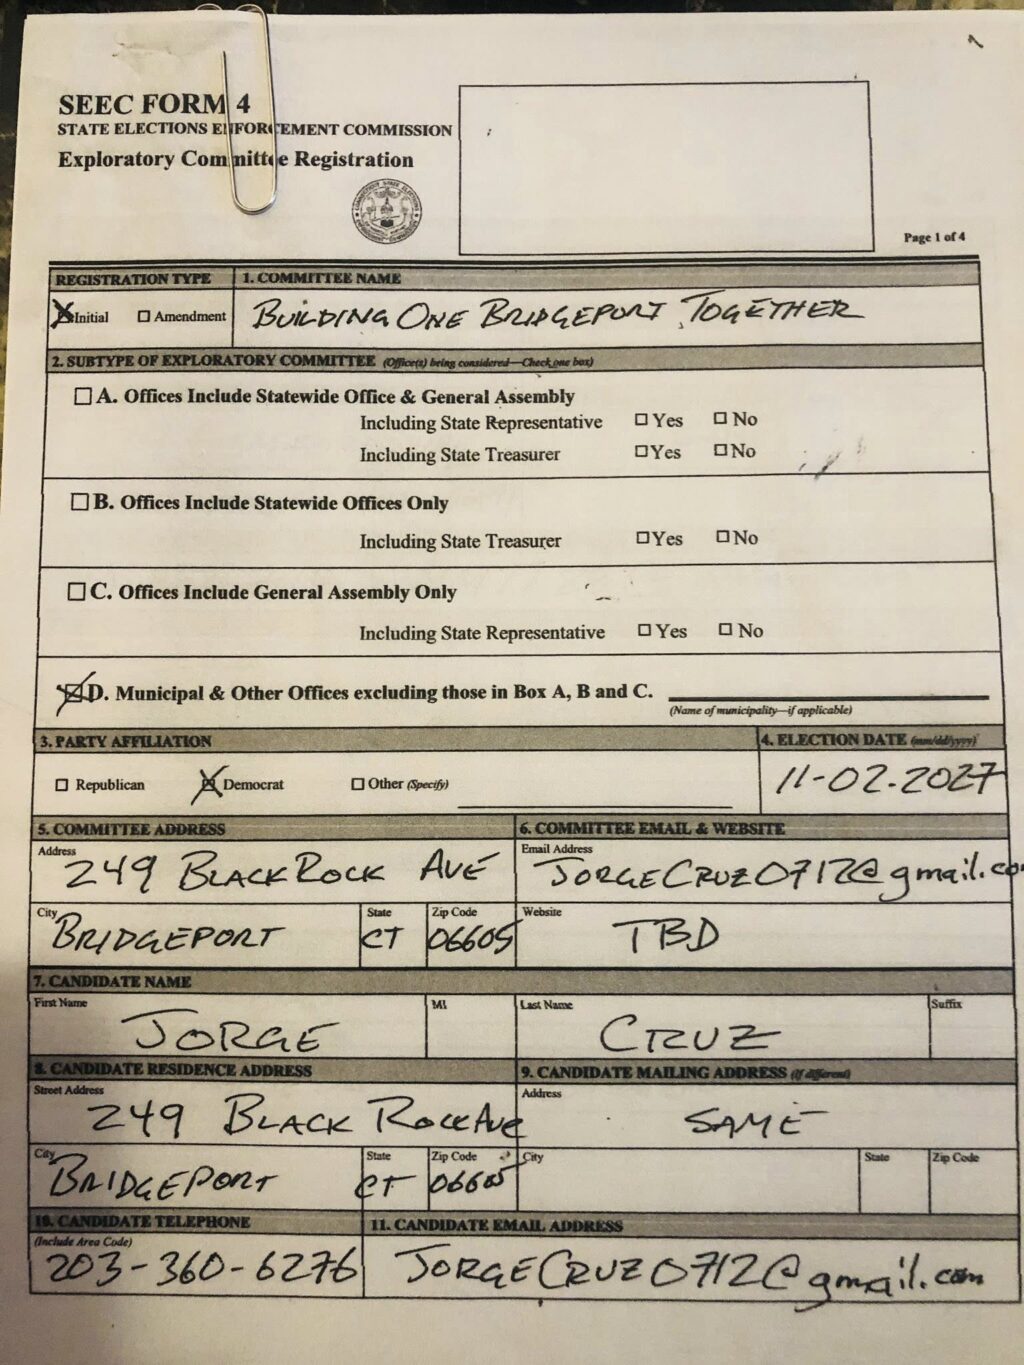 SEEC FORM 4
STATE ELECTIONS ENFORCEMENT COMMISSION
Exploratory Committee Registration
Page 1 of 4
REGISTRATION TYPE
1. COMMITTEE NAME
Initial Amendment
BUILDING ONE BRIDGEPORT TOGETHER
2. SUBTYPE OF EXPLORATORY COMMITTEE (Office(s) being considered—Check one box)
A. Offices Include Statewide Office & General Assembly
Including State Representative Yes No
Including State Treasurer Yes No
B. Offices Include Statewide Offices Only
Including State Treasurer Yes No
C. Offices Include General Assembly Only
Including State Representative Yes No
D. Municipal & Other Offices excluding those in Box A, B and C.
(Name of municipality—if applicable)
3. PARTY AFFILIATION
4. ELECTION DATE (mm/dd/yyyy)
Republican Democrat Other (Specify)
11-02-2027
5. COMMITTEE ADDRESS
6. COMMITTEE EMAIL & WEBSITE
Address
249 BLACK ROCK AVE
Email Address
JORGECRUZ0712@gmail.co
City
BRIDGEPORT
State
CT
Zip Code
06605
Website
TBD
7. CANDIDATE NAME
First Name
JORGE
MI
Last Name
CRUZ
Suffix
8. CANDIDATE RESIDENCE ADDRESS
9. CANDIDATE MAILING ADDRESS (if different)
Street Address
249 BLACK ROCK AVE
Address
SAME
City
BRIDGEPORT
State
CT
Zip Code
06605
City
State
Zip Code
10. CANDIDATE TELEPHONE
11. CANDIDATE EMAIL ADDRESS
(Include Area Code)
203-360-6276
JORGECRUZ0712@gmail.com